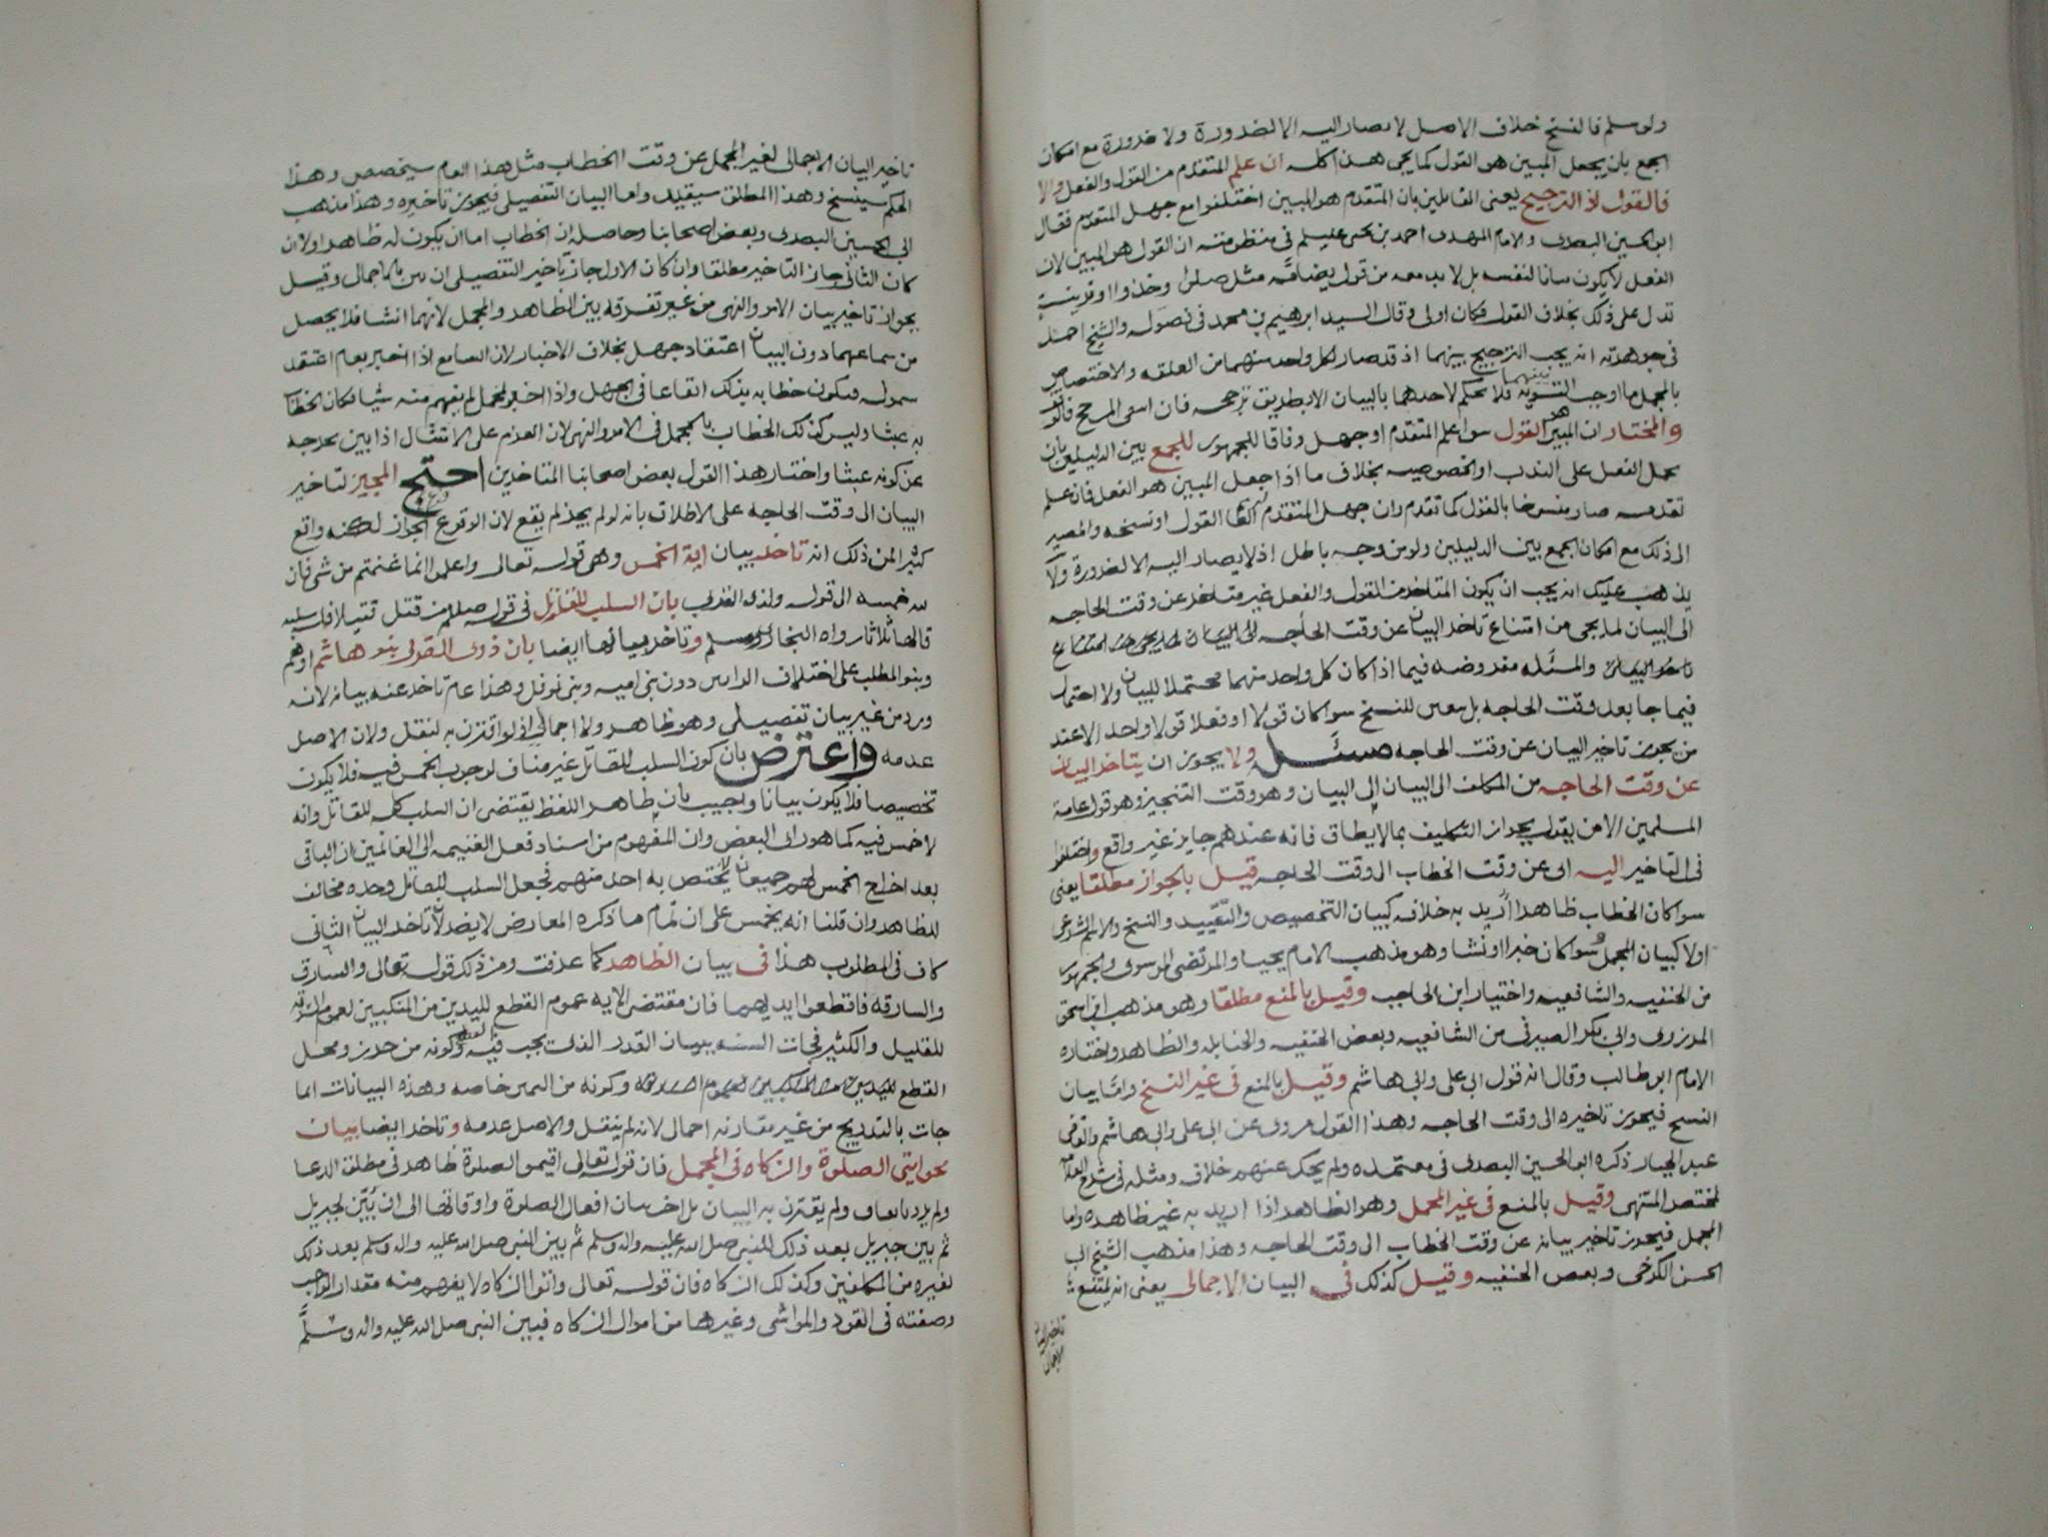 ولو سلم فالنسخ خلاف الاصل لا يصار اليه الا لضرورة ولا ضرورة مع امكان
الجمع بان يجعل المبين هو القول كما يجي هذا كله ان علم المتقدم من القول والفعل والا
فالقول اذ الترجيح يعنى القايلين بان المتقدم هو المبين اختلفوا مع جهل المتقدم فقال
ابو الحسين البصرى والامام المهدى احمد بن يحيى عليلم في منظومته ان القول هو المبين لان
الفعل لا يكون بيانا لنفسه بل لا بد معه من قول يضافه مثل صلوا وخذوا او قرينة
تدل على ذلك بخلاف القول فكان اولى وقال السيد ابرهيم بن محمد في فصوله والشيخ احمد
في جوهرته انه يجب الترجيح بينهما اذ قد صار لكل واحد منهما من العلقه والاختصاص
بالمجمل ما اوجب التسويه بينهما فلا يحكم لاحدهما بالبيان الا بطريق ترجحه فان انتفى المرجح فالوقف
والمختار ان المبين هو القول سوا علم المتقدم او جهل وفاقا للجمهور للجمع بين الدليلين بان
يحمل الفعل على الندب او الخصوصيه بخلاف ما اذا جعل المبين هو الفعل فانه علم
تقدمه صار منسوخا بالقول كما تقدم وان جهل المتقدم القول او نسخه والمصير
الى ذلك مع امكان الجمع بين الدليلين ولو من وجه باطل اذ لا يصار اليه الا لضرورة ولا
يذهب عليك انه يجب ان يكون المتاخر من القول والفعل غير متاخر عن وقت الحاجه
الى البيان لما يجى من امتناع تاخر البيان عن وقت الحاجه الى البيان لما يجى من امتناع
تاخر البيان والمسئله مفروضه فيما اذا كان كل واحد منهما محتملا للبيان ولا احتمال
فيما جا بعد وقت الحاجه بل يتعين للنسخ سوا كان قولا او فعلا قولا واحدا الا عند
من يجوز تاخير البيان عن وقت الحاجه مسئله ولا يجوز ان يتاخر البيان
عن وقت الحاجه من المكلف الى البيان الى البيان وهو وقت التنجيز وهو قول عامة
المسلمين الا من يقول بجواز التكليف بما لا يطاق فانه عندهم جايز غير واقع واختلفوا
في التاخير اليه اى عن وقت الخطاب الى وقت الحاجه قيل بالجواز مطلقا يعنى
سوا كان الخطاب ظاهرا اريد به خلافه كبيان التخصيص والتقييد والنسخ والاسم الشرعى
اولا كبيان المجمل وسوا كان خبرا او انشا وهو مذهب الامام يحيا والمرتضى الموسوى والجمهور
من الحنفيه والشافعيه واختيار ابن الحاجب وقيل بالمنع مطلقا وهو مذهب ابى اسحق
المروزى وابى بكر الصيرفى من الشافعيه وبعض الحنفيه والحنابله والظاهر واختاره
الامام ابو طالب وقال انه قول ابى على وابى هاشم وقيل بالمنع فى غير النسخ واما بيان
النسخ فيجوز تاخيره الى وقت الحاجه وهذا القول مروى عن ابى على وابى هاشم والقاضى
عبد الجبار ذكره ابو الحسين البصرى فى معتمده ولم يحك عنهم خلاف ومثله فى شرح العلامه
لمختصر المنتهى وقيل بالمنع فى غير المجمل وهو الظاهر اذا اريد به غير ظاهره واما
المجمل فيجوز تاخير بيانه عن وقت الخطاب الى وقت الحاجه وهذا مذهب الشيخ ابى
الحسن الكرخى وبعض الحنفيه وقيل كذلك فى البيان الاجمالى يعنى انه يمتنع
تاخير البيان
تاخير البيان الاجمالى لغير المجمل عن وقت الخطاب مثل هذا العام سيخصص وهذا
الحكم سينسخ وهذا المطلق سيقيد واما البيان التفصيلى فيجوز تاخيره وهذا مذهب
ابى الحسين البصرى وبعض اصحابنا وحاصله ان الخطاب اما ان يكون له ظاهر او لا ان
كان الثانى جاز التاخير مطلقا وان كان الاول جاز تاخير التفصيلى ان بين بالاجمال وقيل
بجواز تاخير بيان الامر والنهى من غير تفرقه بين الظاهر والمجمل لانهما انشا فلا يحصل
من سماعهما دون البيان اعتقاد جهل بخلاف الاخبار لان السامع اذا اخبر بعام اعتقد
شموله فيكون خطابه بذلك ايقاعا فى الجهل واذا اخبر بمجمل لم يفهم منه شيا فكان الخطاب
به عبثا وليس كذلك الخطاب بالمجمل فى الامر والنهى لان العزم على الامتثال اذا بين يخرجه
عن كونه عبثا واختار هذا القول بعض اصحابنا المتاخرين احتج المجيز لتاخير
البيان الى وقت الحاجه على الاطلاق بانه لو لم يجز لم يقع لان الوقوع فرع الجواز لكنه واقع
كثيرا من ذلك انه تاخر بيان اية الخمس وهى قوله تعالى واعلموا انما غنمتم من شى فان
لله خمسه الى قوله ولذى القربى بان السلب للقاتل فى قوله صللم من قتل قتيلا فله سلبه
قالها ثلاثا رواه البخارى ومسلم وتاخر بيانها ايضا بان ذوى القربى بنو هاشم او هم
وبنو المطلب على اختلاف الرايين دون بنى اميه وبنى نوفل وهذا عام تاخر عنه بيانه لانه
ورد من غير بيان تفصيلى وهو ظاهر ولا اجمالى اذ لو اقترن به لنقل ولان الاصل
عدمه واعترض بان كون السلب للقاتل غير مناف لوجوب الخمس فيه فلا يكون
تخصيصا فلا يكون بيانا واجيب بان ظاهر اللفظ يقتضى ان السلب كله للقاتل وانه
لا خمس فيه كما هو راى البعض وان المفهوم من اسناد فعل الغنيمه الى الغانمين ان الباقى
بعد اخراج الخمس لهم جميعا لا يختص به احد منهم فجعل السلب للقاتل وحده مخالف
للظاهر وان قلنا انه يخمس على ان تمام ما ذكره المعارض لا يضر لان تاخر البيان الثانى
كاف فى المطلوب هذا فى بيان الظاهر كما عرفت ومن ذلك قوله تعالى والسارق
والسارقه فاقطعوا ايديهما فان مقتضى الايه عموم القطع لليدين من المنكبين لعموم السرقه
للقليل والكثير فجات السنه ببيان القدر الذى يجب فيه القطع وكونه من حرز ومحل
القطع لليدين من المنكبين لعموم السرقه وكونه من اليمين خاصه وهذه البيانات انما
جات بالتدريج من غير مقارنه اجمالى لانه لم ينقل والاصل عدمه وتاخر ايضا بيان
نحو ايتى الصلوة والزكاه فى المجمل فان قوله تعالى اقيموا الصلوة ظاهر فى مطلق الدعا
ولم يرد باتفاق ولم يقترن به البيان بل اخر بيان افعال الصلوة واوقاتها الى ان بين لجبريل
ثم بين جبريل بعد ذلك للنبى صلى الله عليه واله وسلم ثم بين النبى صلى الله عليه واله وسلم بعد ذلك
لغيره من المكلفين وكذلك الزكاه فان قوله تعالى واتوا الزكاه لا يفهم منه مقدار الواجب
وصفته فى النقود والمواشى وغيرها من اموال الزكاه فبين النبى صلى الله عليه واله وسلم